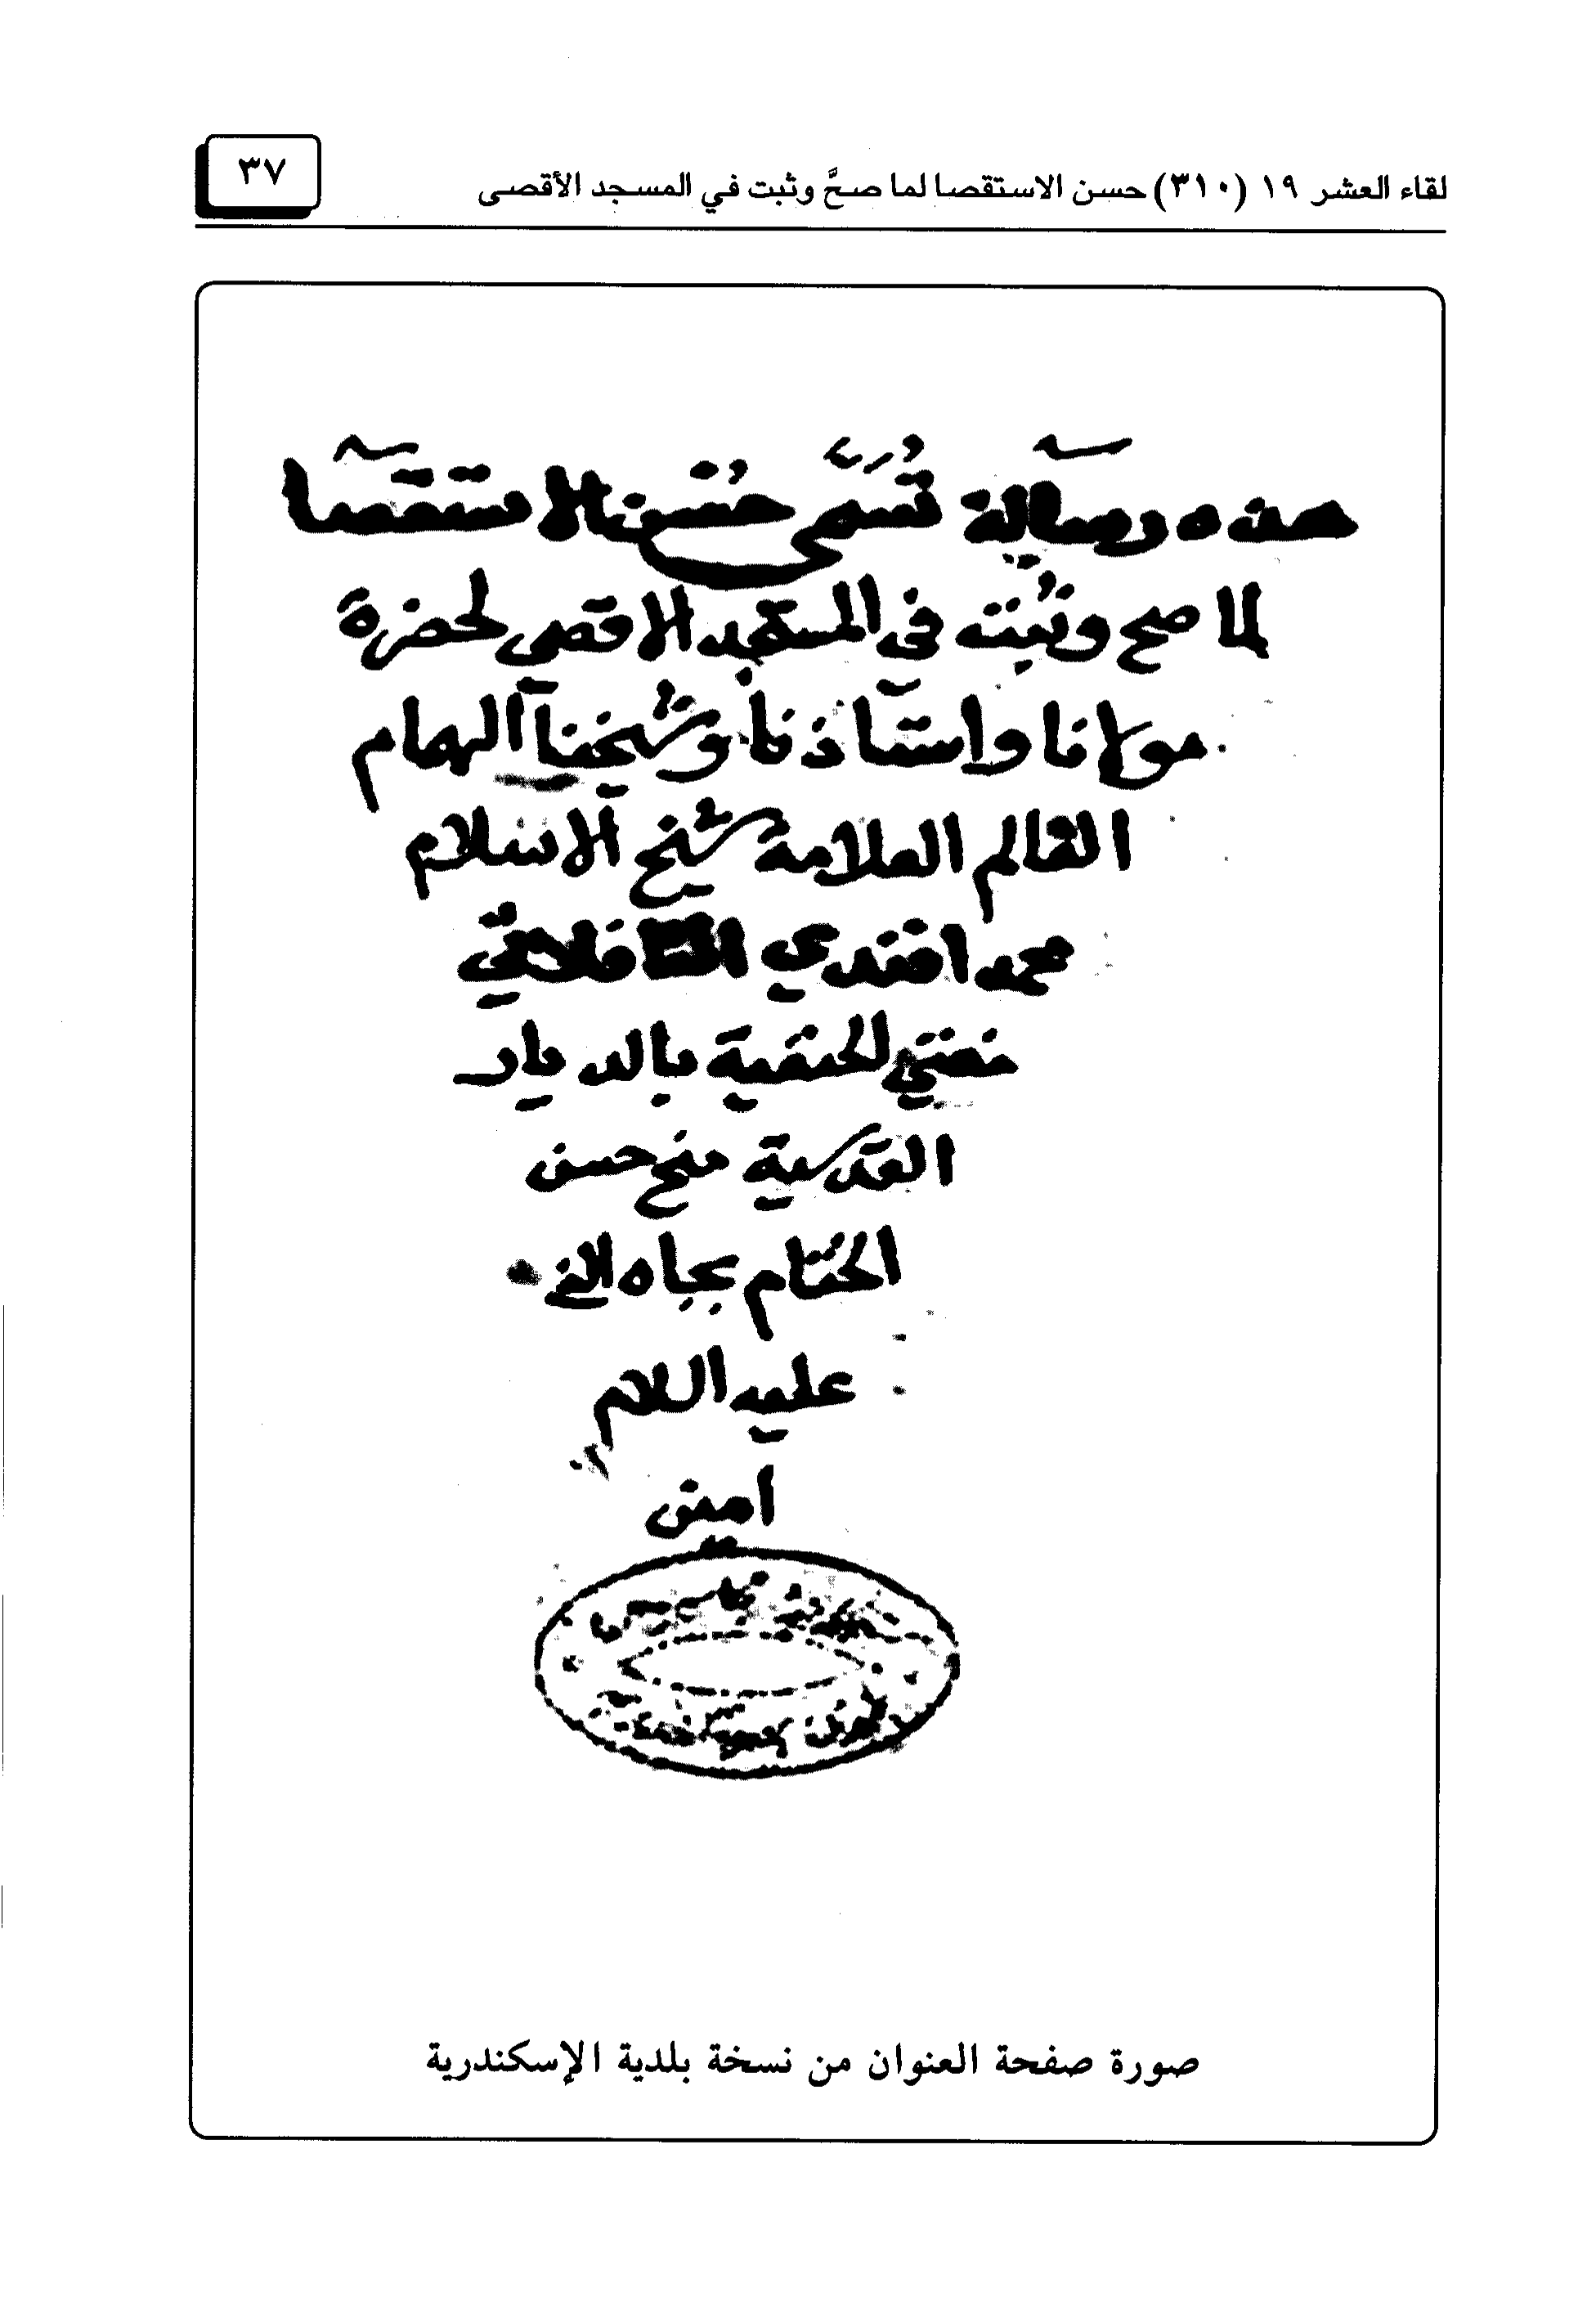 لقاء العشر ١٩ (٣١٠) حسن الاستقصا لما صحَّ وثبت في المسجد الأقصى
٣٧
هذه رسالة تُسَمَّى حُسْن الاستقصا
لما صح وثبت في المسجد الاقصى لحضرة
مولانا واستاذنا وشيخنا الهمام
العالم العلامة شيخ الاسلام
محمد افندي التافلاتي
مفتي الحنفية بالديار
القدسية منح حسن
الختام بجاه النبي
عليه السلام
امين
صورة صفحة العنوان من نسخة بلدية الإسكندرية